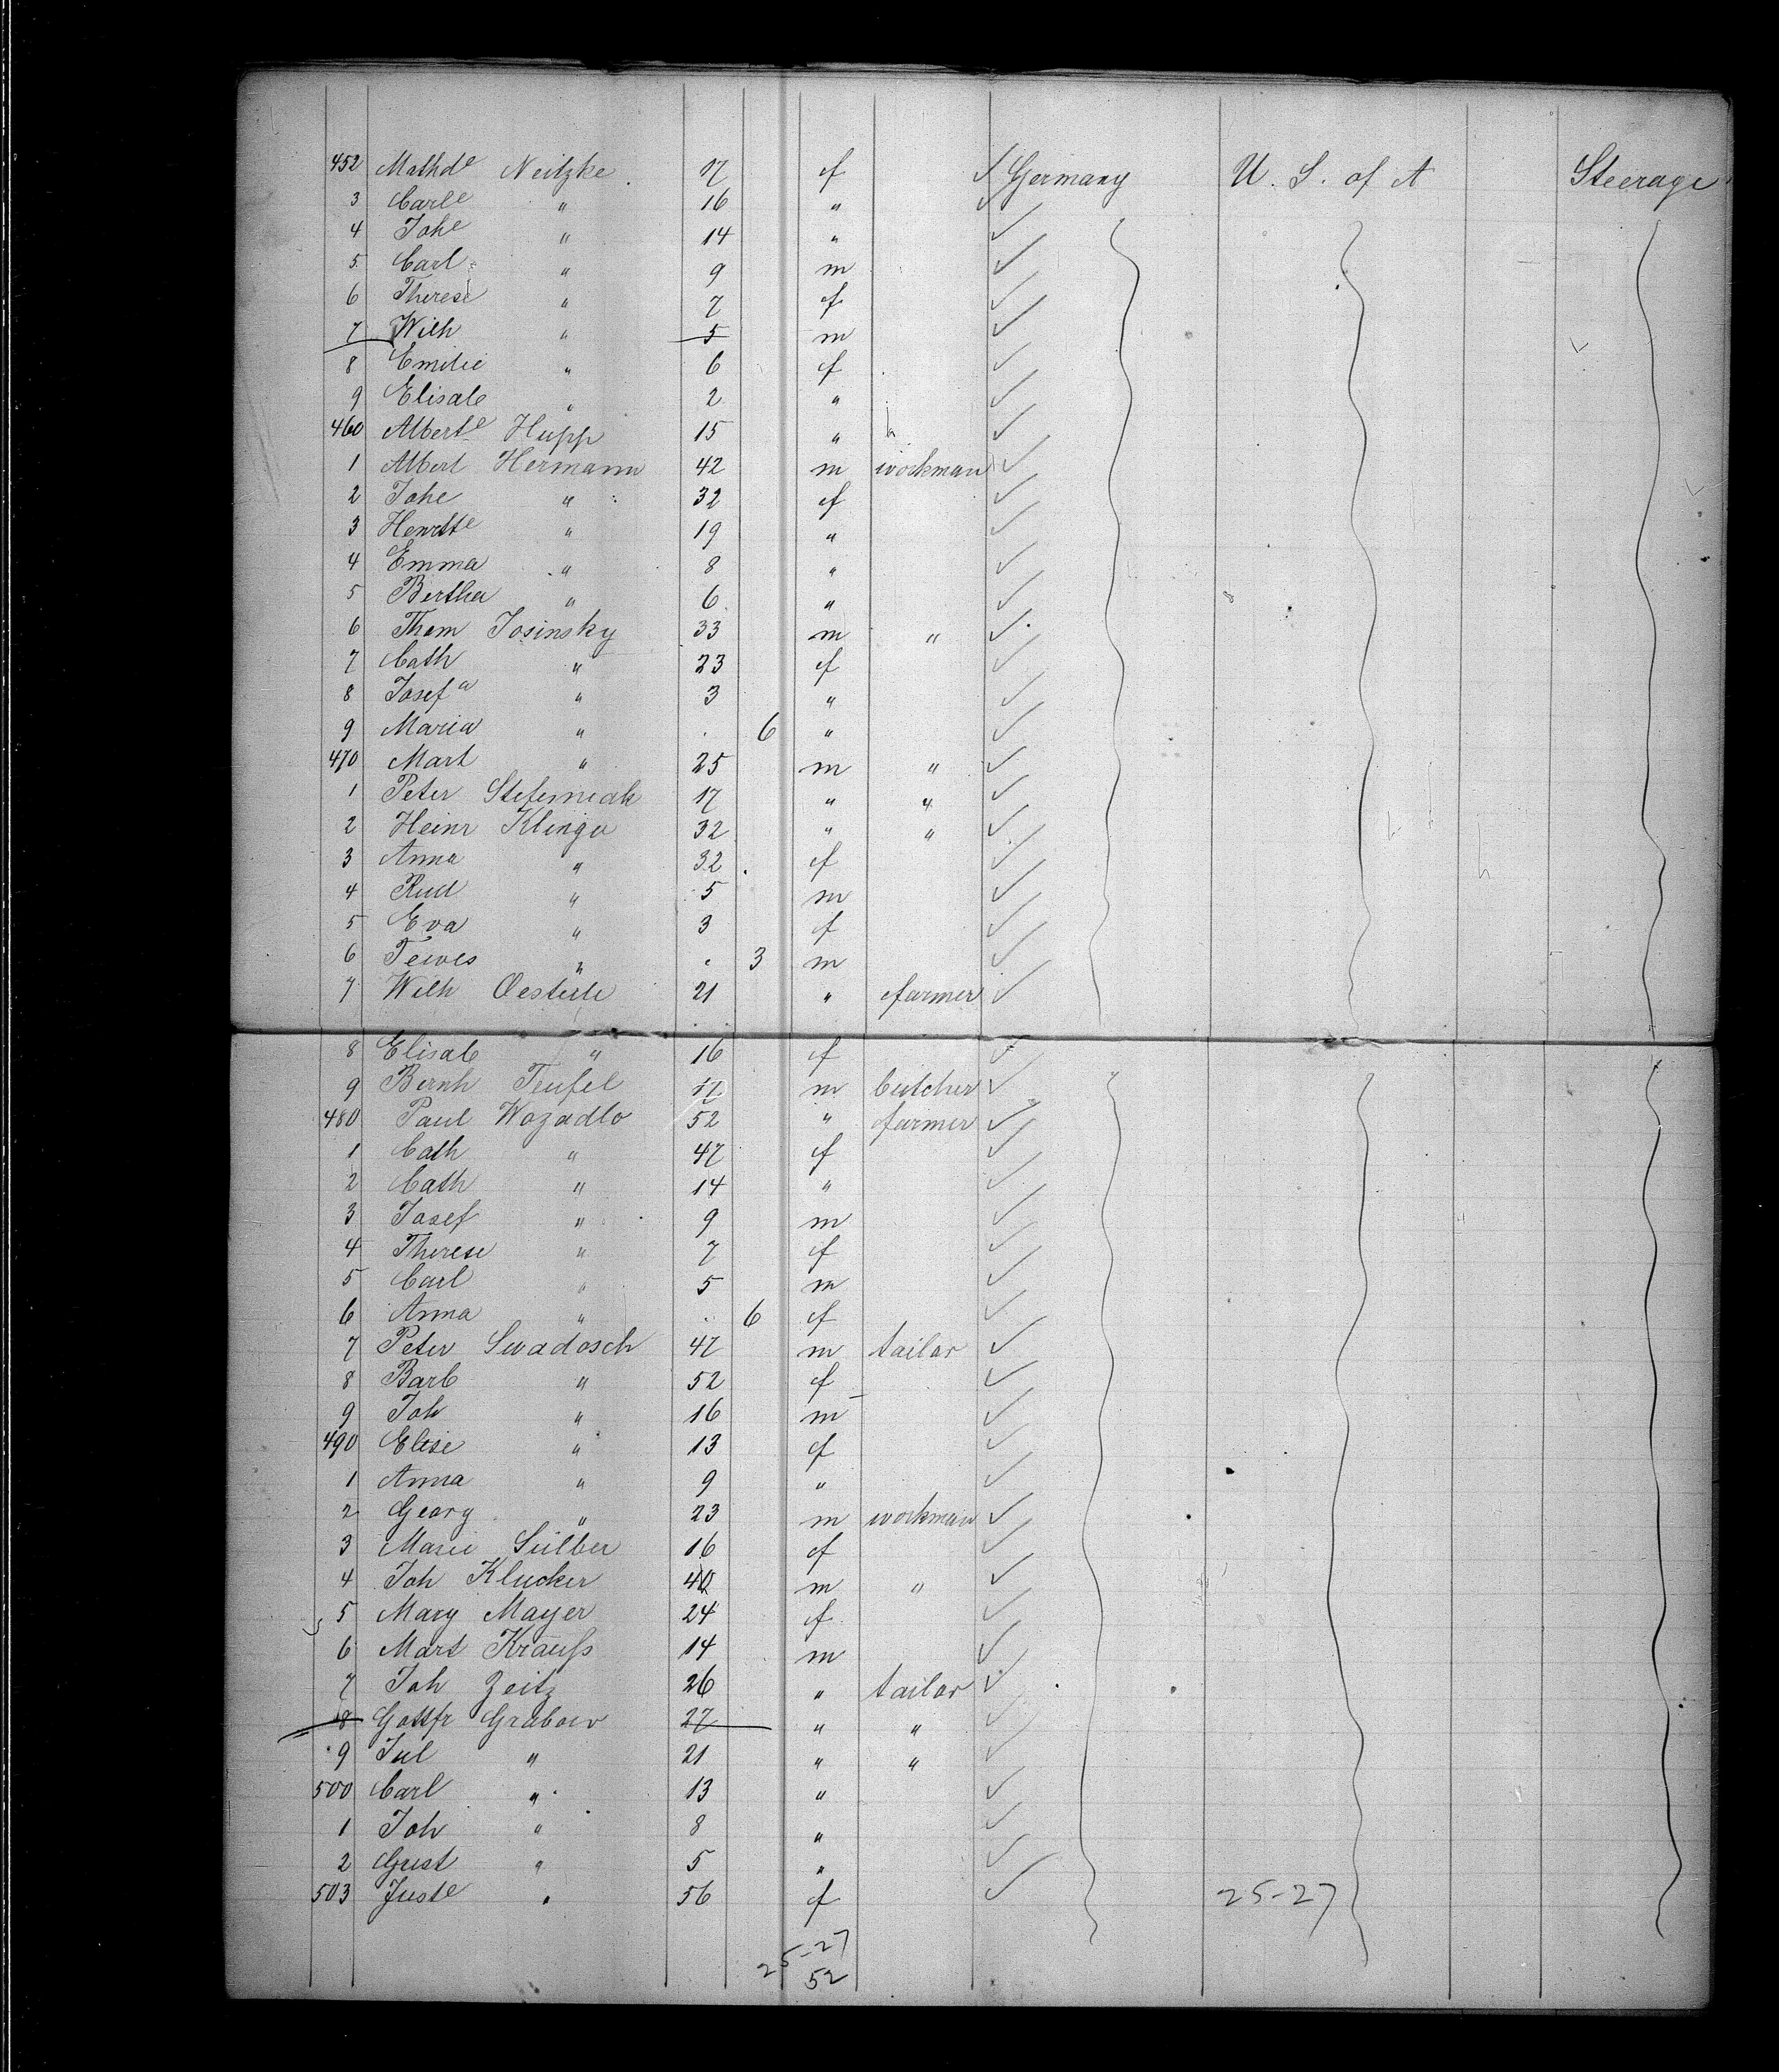 452 Mathde Neitzke 17 f Germany U. S. of A Steerage
3 Carle " 16 "
4 Johe " 14 "
5 Carl " 9 m
6 Therese " 7 f
7 Wilh " 5 m
8 Emilie " 6 f
9 Elisab " 2 "
460 Alberte Hupp 15 "
1 Albert Hermann 42 m workman
2 Johe " 32 f
3 Henrtte " 19 "
4 Emma " 8 "
5 Bertha " 6 "
6 Thom Josinsky 33 m "
7 Cath " 23 f
8 Josefa " 3 "
9 Maria " . 6 "
470 Mart " 25 m "
1 Peter 17 " "
2 Heinr Klinge 32 " "
3 Anna " 32 f
4 Rud " 5 m
5 Eva " 3 f
6 Tewes " . 3 m
7 Wilh Oesterle 21 " farmer
8 Elisab " 16 f
9 Bernh Teufel 17 m butcher
480 Paul Wozadlo 52 " farmer
1 Cath " 47 f
2 Cath " 14 "
3 Josef " 9 m
4 Therese " 7 f
5 Carl " 5 m
6 Anna " . 6 f
7 Peter Swadosch 47 m tailor
8 Barb " 52 f
9 Joh " 16 m
490 Elise " 13 f
1 Anna " 9 "
2 Georg " 23 m workman
3 Marie Silber 16 f
4 Joh Klucker 40 m "
5 Mary Mayer 24 f
6 Mart Krauss 14 m
7 Joh Zeitz 26 " tailor
8 Gottfr Grabow 27 " "
9 Jul " 21 " "
500 Carl " 13 "
1 Joh " 8 "
2 Gust " 5 "
503 Juste " 56 f 25-27
25-27
52